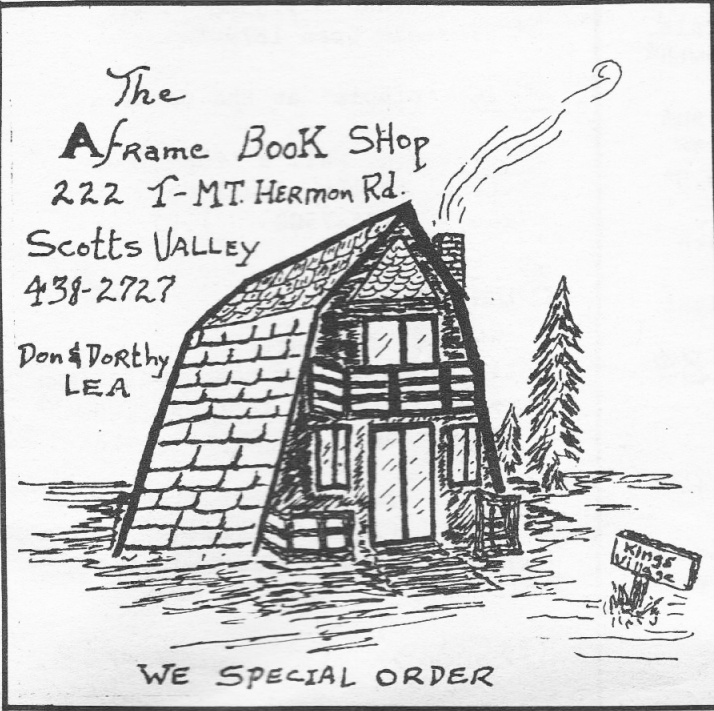 The
Aframe Book Shop
222 I-MT. Hermon Rd.
Scotts Valley
438-2727
Don & Dorthy
LEA
Kings
Village
WE SPECIAL ORDER